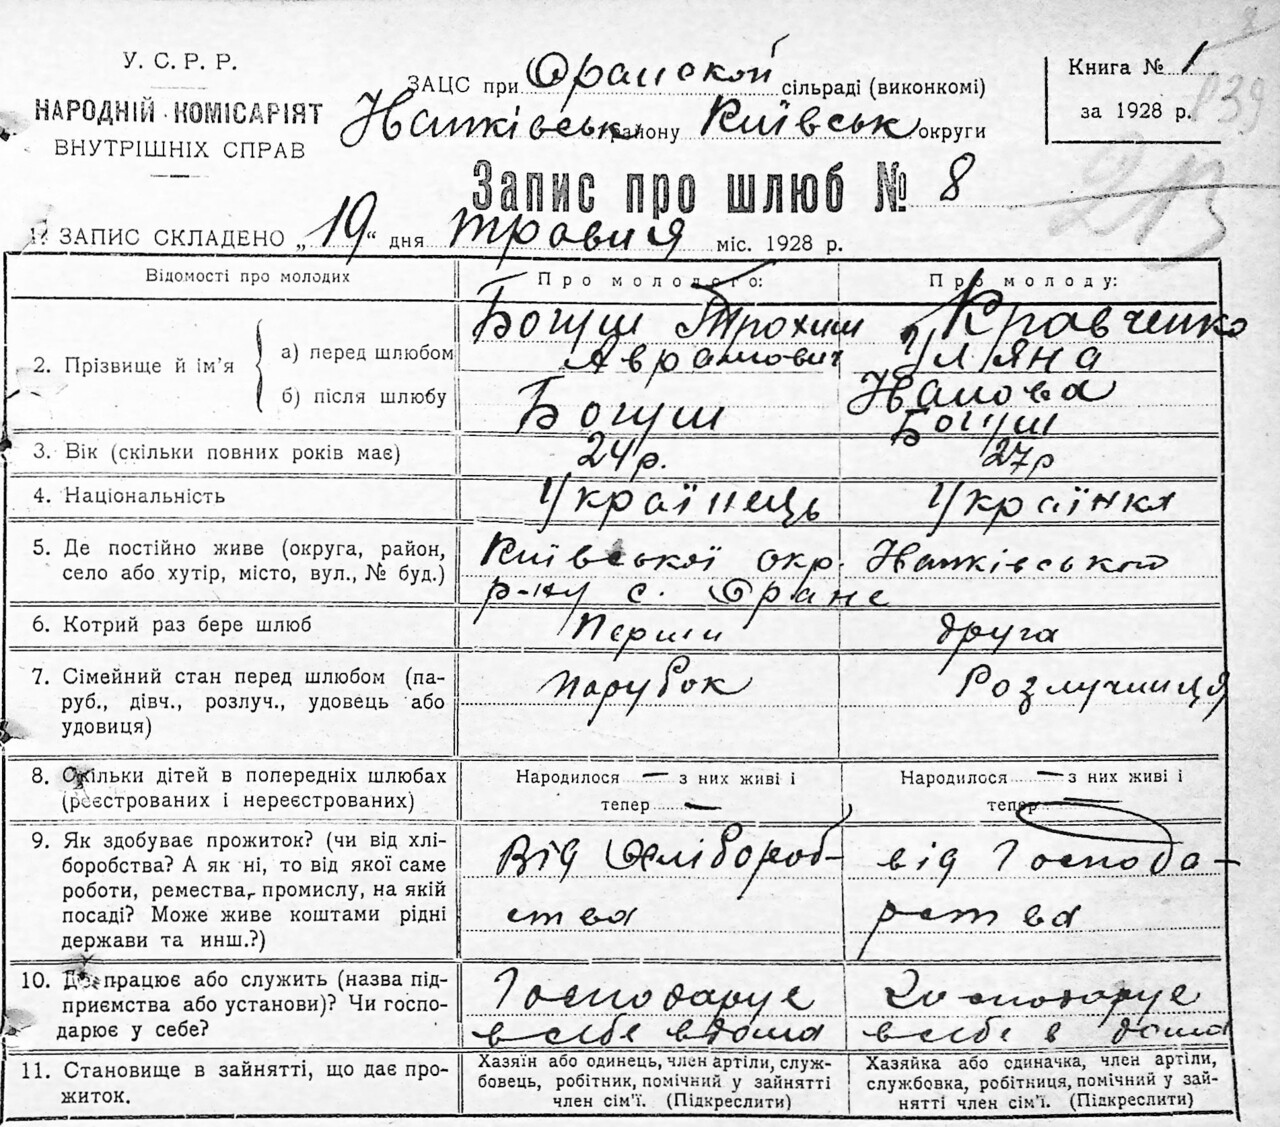 У. С. Р. Р.
НАРОДНІЙ КОМІСАРІЯТ
ВНУТРІШНІХ СПРАВ
ЗАЦС при Оранской сільраді (виконкомі)
району Київськ округи
Книга № 1
за 1928 р.
839
213
Запис про шлюб № 8
1. ЗАПИС СКЛАДЕНО „19“ дня травня міс. 1928 р.
Відомості про молодих
Про молодого:
Про молоду:
2. Прізвище й ім’я
а) перед шлюбом
б) після шлюбу
Богуш Трохим
Аврамович
Богуш
Кравченко
Уляна
Богуш
3. Вік (скільки повних років має)
24р.
27р
4. Національність
Українець
Українка
5. Де постійно живе (округа, район,
село або хутір, місто, вул., № буд.)
Київської окр.
р-ну с. Оране
6. Котрий раз бере шлюб
Перши
друга
7. Сімейний стан перед шлюбом (па-
руб., дівч., розлуч., удовець або
удовиця)
парубок
Розлучниця
8. Скільки дітей в попередніх шлюбах
(реєстрованих і нереєстрованих)
Народилося — з них живі і
тепер —
Народилося — з них живі і
тепер —
9. Як здобуває прожиток? (чи від хлі-
боробства? А як ні, то від якої саме
роботи, ремества, промислу, на якій
посаді? Може живе коштами рідні
держави та инш.?)
Від Хлібороб-
ства
від Господа-
рства
10. Де працює або служить (назва під-
приємства або установи)? Чи госпо-
дарює у себе?
Господарує
в себе вдома
Господарує
в себе в дома
11. Становище в зайнятті, що дає про-
житок.
Хазяїн або одинець, член артіли, служ-
бовець, робітник, помічний у зайнятті
член сім’ї. (Підкреслити)
Хазяйка або одиначка, член артіли,
службовка, робітниця, помічний у зай-
нятті член сім’ї. (Підкреслити)